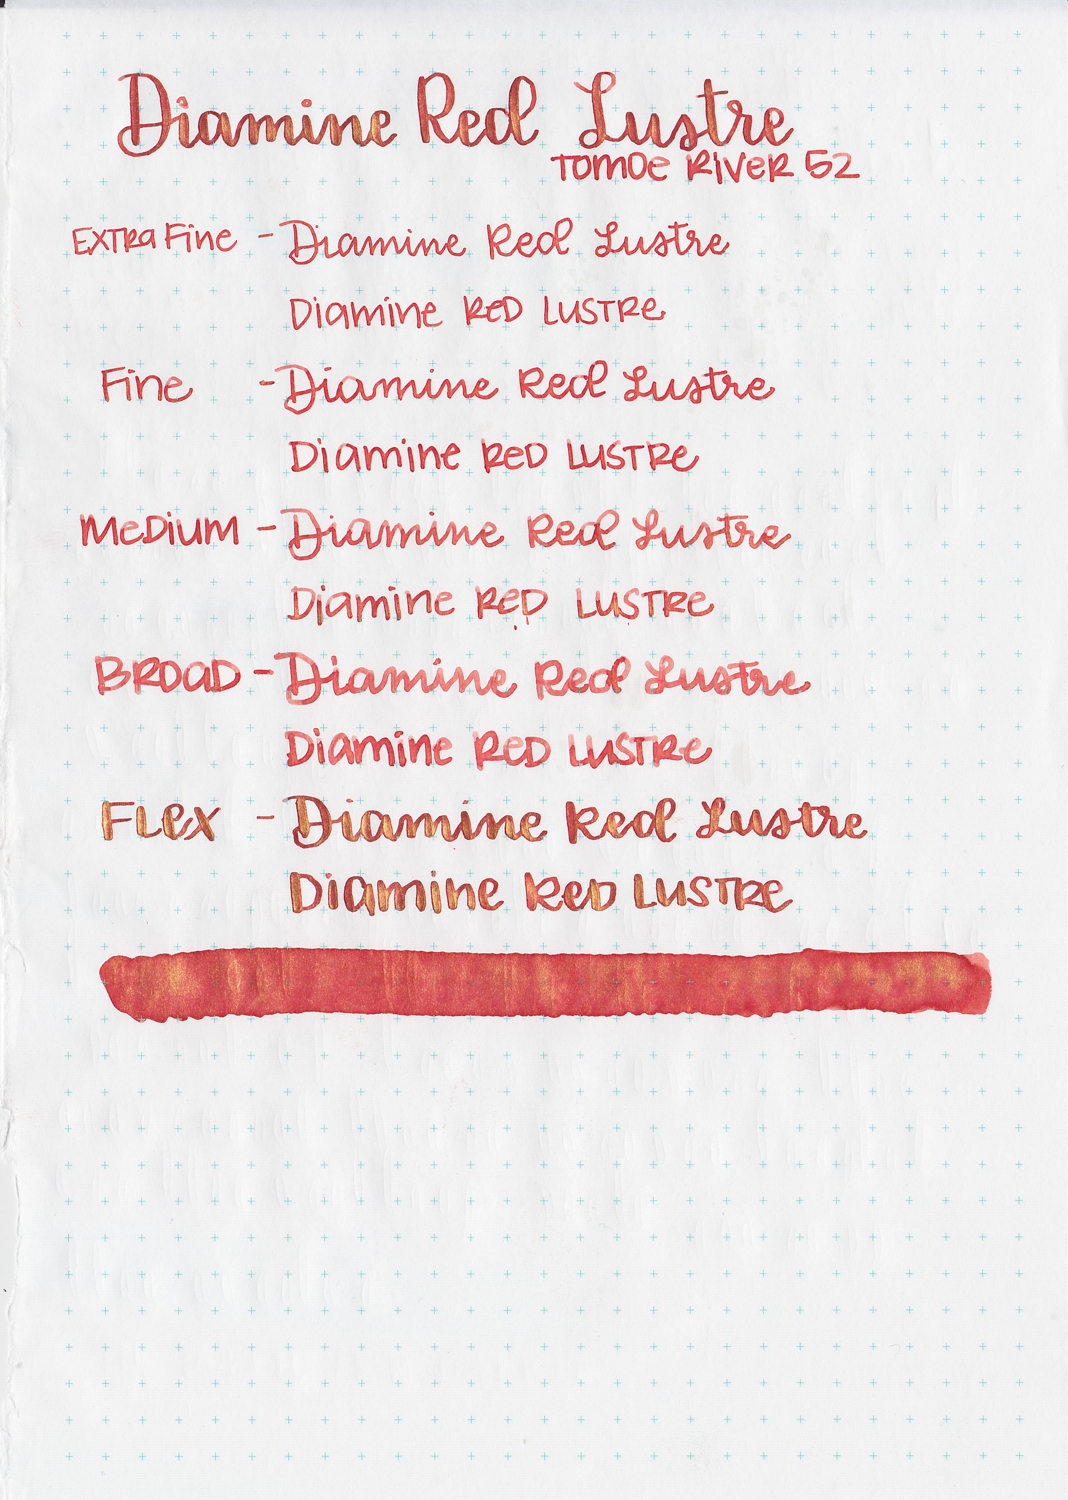 Diamine Red Lustre
Tomoe River 52
Extra Fine - Diamine Red Lustre
Diamine Red Lustre
Fine - Diamine Red Lustre
Diamine Red Lustre
Medium - Diamine Red Lustre
Diamine Red Lustre
Broad - Diamine Red Lustre
Diamine Red Lustre
Flex - Diamine Red Lustre
Diamine Red Lustre